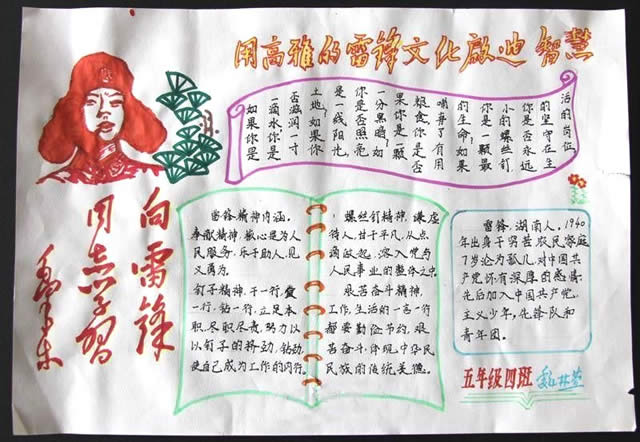 用高雅的雷锋文化啟迪智慧
如果你是
一滴水你是
否滋润一寸
土地?如果你
是一线阳光,
你是否照亮
一分黑暗?如
果你是一颗
粮食你是否
哺育了有用
的生命?如果
你是一颗最
小的螺丝钉
你是否永远
的坚守在生
活的岗位
向雷锋
同志学习
毛泽东
雷锋精神内涵.
奉献精神,核心是为人
民服务,乐于助人,见
义勇为.
钉子精神,干一行,爱
一行,钻一行,立足本
职,尽职尽责,努力以
以钉子的挤劲,钻劲
使自己成为工作的内行.
螺丝钉精神,谦虚
待人,甘于平凡,从点
滴做起,溶入党与
人民事业的整体之中.
艰苦奋斗精神,
工作,生活的一言一行
都要勤俭节约,艰
苦奋斗,体现中华民
民族的传统美德.
雷锋,湖南人.1940
年出身于穷苦农民家庭
7岁沦为孤儿,对中国共
产党怀有深厚的感情.
先后加入中国共产党,
主义少年,先锋队和
青年团.
五年级四班